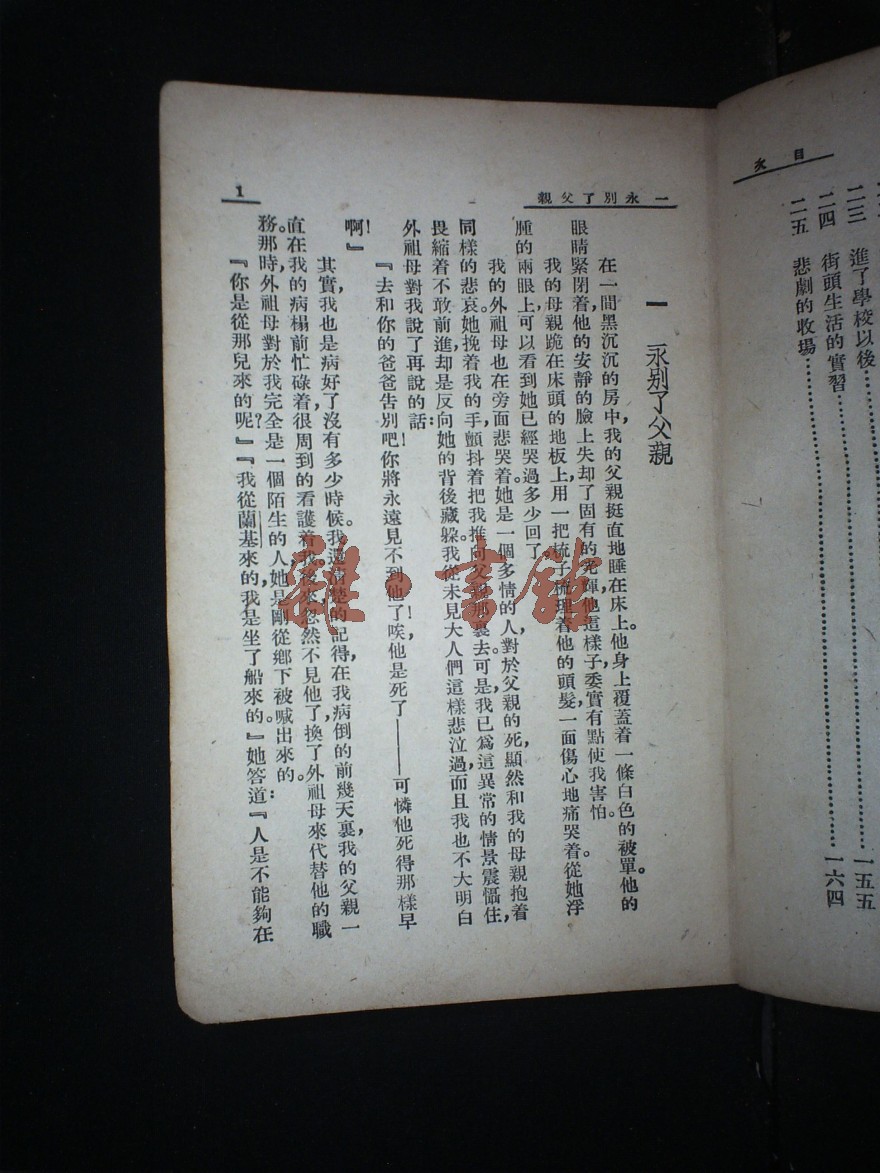 目次
二三 進了學校以後……一五五
二四 街頭生活的實習……一六四
二五 悲劇的收場……
一 永別了父親
1
一 永別了父親
在一間黑沉沉的房中,我的父親挺直地睡在床上。他身上覆蓋着一條白色的被單。他的
眼睛緊閉着他的安靜的臉上失却了固有的光輝他這樣子委實有點使我害怕。
我的母親跪在床頭的地板上,用一把梳子梳理着他的頭髮,一面傷心地痛哭着。從她浮
腫的兩眼上,可以看到她已經哭過多少回了。
我的外祖母也在旁面悲哭着。她是一個多情的人,對於父親的死,顯然和我的母親抱着
同樣的悲哀。她挽着我的手,顫抖着把我推向父親那裏去。可是,我已爲這異常的情景震懾住,
畏縮着不敢前進,却是反向她的背後藏躲。我從未見大人們這樣悲泣過,而且我也不大明白
外祖母對我說了再說的話:
『去和你的爸爸告別吧!你將永遠見不到他了!唉,他是死了——可憐他死得那樣早
啊!』
其實,我也是病好了沒有多少時候。我還清楚的記得,在我病倒的前幾天裏,我的父親一
直在我的病榻前忙碌着很周到的看護着我。後來忽然不見他了,換了外祖母來代替他的職
務。那時外祖母對於我完全是一個陌生的人,她是剛從鄉下被喊出來的。
『你是從那兒來的呢?』『我從蘭基來的,我是坐了船來的。』她答道:『人是不能夠在
雜·書館